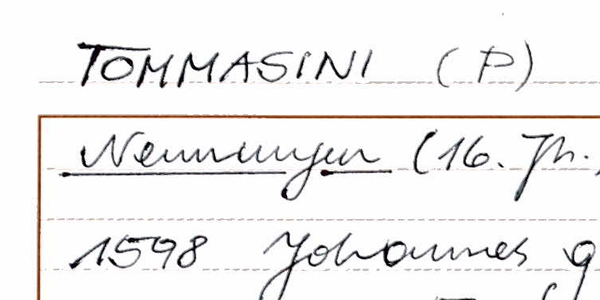 TOMMASINI (P)
Nennungen (16. Jh.
1598 Johannes